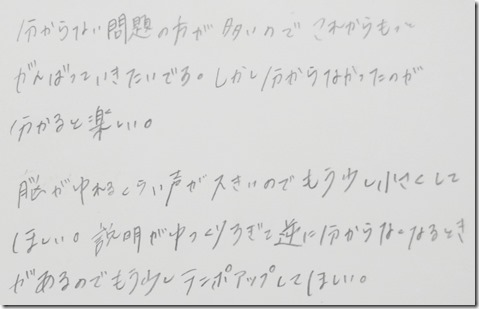 分からない問題の方が多いので これからもっと
がんばっていきたいです。しかし分からなかったのが
分かると楽しい。
脳がゆれるくらい声が大きいのでもう少し小さくして
ほしい。説明がゆっくりすぎて逆に分からなくなるとき
があるのでもう少しテンポアップしてほしい。